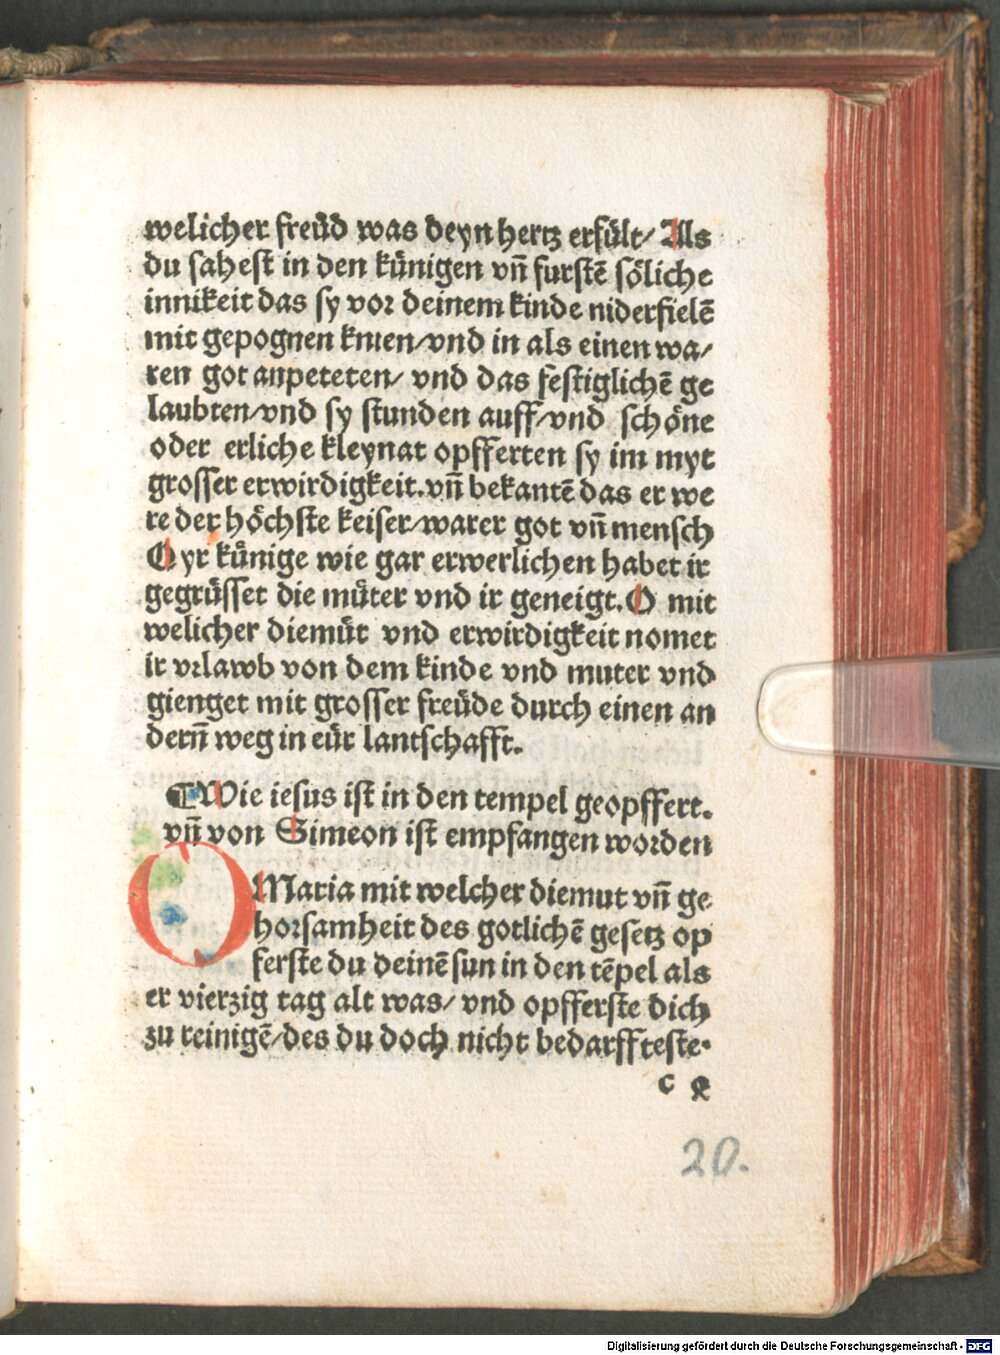 welicher freüd was deyn hertz erfült/ Als
du sahest in den künigen vn̄ furstē söliche
innikeit das sy vor deinem kinde niderfielē
mit gepognen knien/vnd in als einen wa/
ren got anpeteten/ vnd das festiglichē ge
laubten/vnd sy stunden auff/vnd schöne
oder erliche kleynat opfferten sy im myt
grosser erwirdigkeit.vn̄ bekantē das er we
re der höchste keiser/warer got vn̄ mensch
O yr künige wie gar erwerlichen habet ir
gegrüsset die müter vnd ir geneigt. O mit
welicher diemüt vnd erwirdigkeit nomet
ir vrlawb von dem kinde vnd muter vnd
gienget mit grosser freüde durch einen an
dern̄ weg in eür lantschafft.
¶ Wie iesus ist in den tempel geopffert.
vn̄ von Simeon ist empfangen worden
O Maria mit welcher diemut vn̄ ge
horsamheit des gotlichē gesetz op
ferste du deinē sun in den tēpel als
er vierzig tag alt was/ vnd opfferste dich
zu reinigē/des du doch nicht bedarffteste.
c
20.
Digitalisierung gefördert durch die Deutsche Forschungsgemeinschaft - DFG